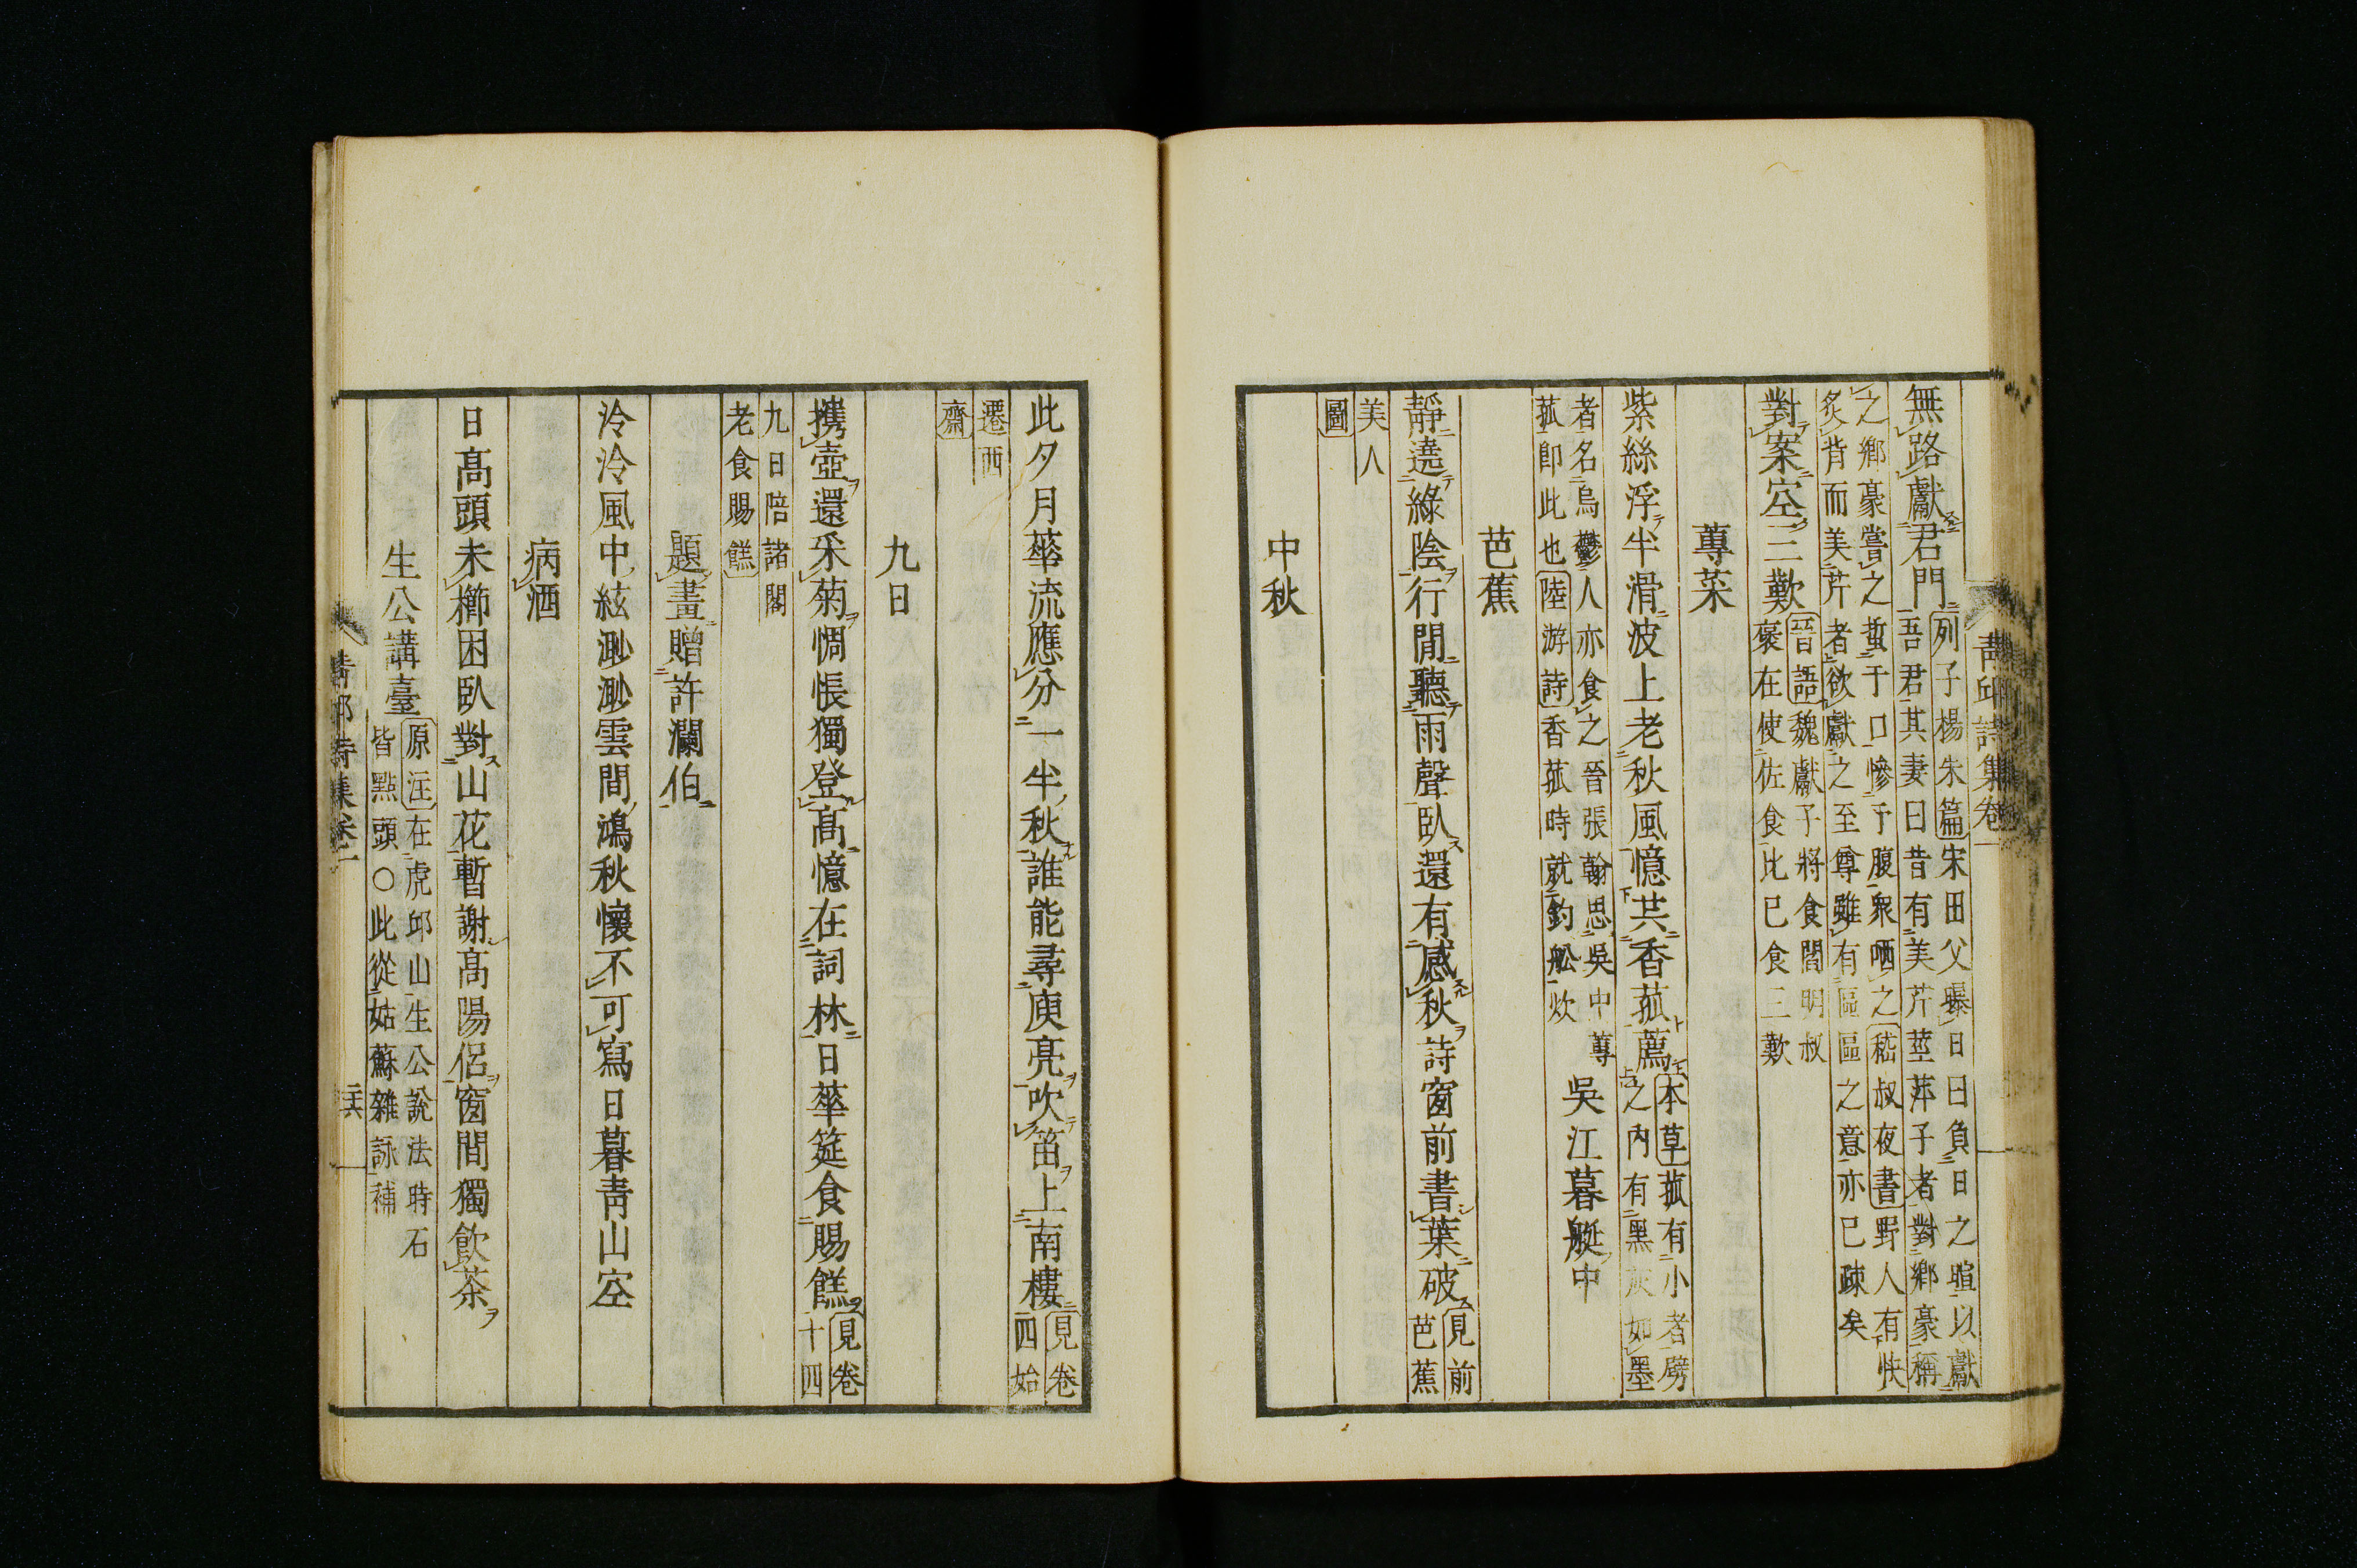 青邱詩集卷一
無路獻君門列子楊朱篇宋田父曝日曰負日之暄以獻
吾君其妻曰昔有美芹莖萍子者對鄉豪稱
之鄉豪嘗之蜇于口慘于腹衆哂之嵇叔夜書野人有快
炙背而美芹者欲獻之至尊雖有區區之意亦已疎矣
對案空三歎晉語魏獻子將食閻明叔
褒在使佐食比已食三歎
蓴菜
紫絲浮半滑波上老秋風憶共香菰薦本草菰有小者劈
之内有黑灰如墨
者名烏鬱人亦食之晉張翰思吳中蓴
菰即此也陸游詩香菰時就釣船炊
吳江暮艇中
芭蕉
靜遶綠陰行閒聽雨聲臥還有感秋詩窗前書葉破見前
芭蕉
美人
圖
中秋
此夕月華流應分一半秋誰能尋庾亮吹笛上南樓見卷
四始
遷西
齋
九日
攜壺還采菊惆悵獨登高憶在詞林日華筵食賜餻見卷
十四
九日陪諸閣
老食賜餻
題畫贈許瀾伯
泠泠風中絃渺渺雲間鴻秋懷不可寫日暮青山空
病酒
日高頭未櫛困臥對山花暫謝高陽侶窗間獨飲茶
生公講臺原注在虎邱山生公說法時石
皆點頭○此從姑蘇雜詠補
青邱詩集卷一
二六